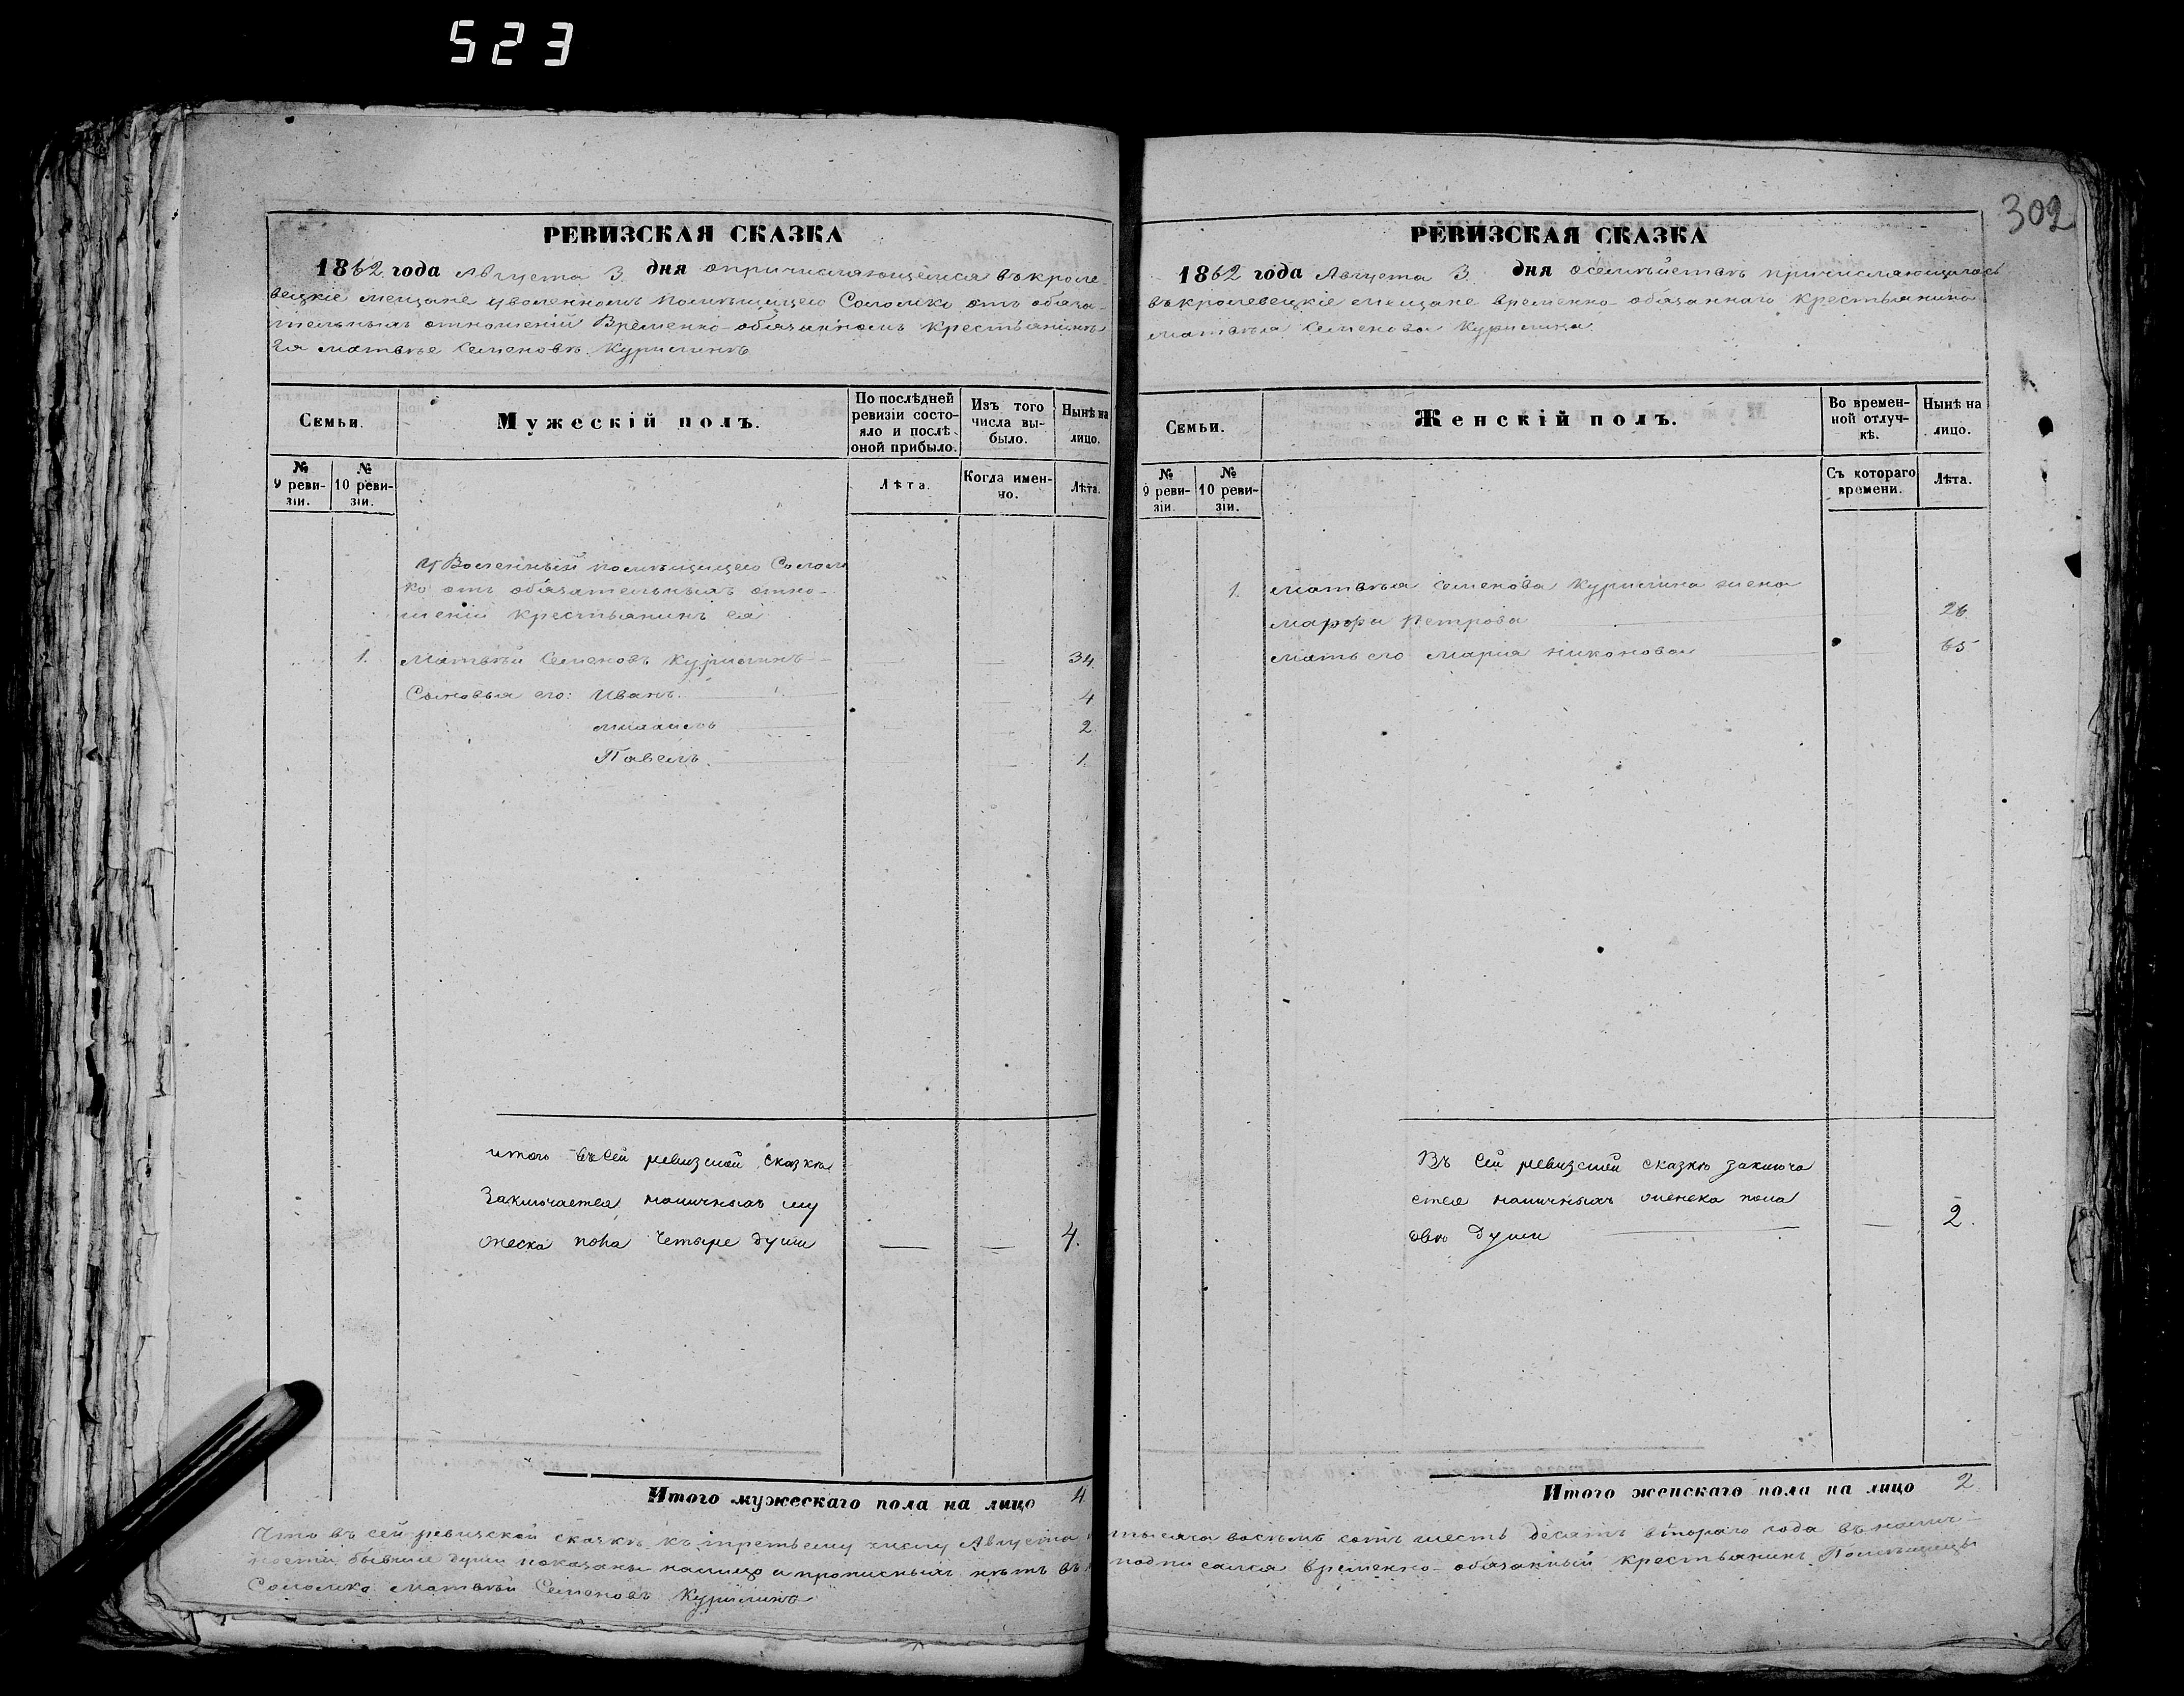 523
302
РЕВИЗСКАЯ СКАЗКА
1862 года Августа 3 дня опричисляющемся въ кроле-
вецкіе мещане уволенномъ помѣщицею Соломко отъ обяза-
тельныхъ отношеній Временно-обязанномъ крестьянинѣ
Ея Матвѣе Семеновѣ Курилинѣ
Семьи.
Мужескій полъ.
По послѣдней
ревизіи состо-
яло и послѣ
оной прибыло.
Изъ того
числа вы-
было.
Нынѣ на
лицо.
№
9 реви-
зіи.
№
10 реви-
зіи.
Лѣта.
Когда имен-
но.
Лѣта.
Уволенный помѣщицею Солом
ко отъ обязательныхъ отно-
шеній крестьянинъ ея
1. Матвѣй Семеновъ Курилинъ — — — 34.
Сыновья его: Иванъ. — 4
Михаилъ — 2.
Павелъ. — 1.
итого въ сей ревизской сказкѣ
Заключается наличныхъ му
жеска пола Четыре души — — 4.
Итого мужескаго пола на лицо 4
РЕВИЗСКАЯ СКАЗКА
1862 года Августа 3 дня осемѣйствѣ причисляющагося
въ кролевецкіе мещане временно-обязаннаго крестьянина
Матвѣя Семенова Курилина
Семьи.
Женскій полъ.
Во времен-
ной отлуч-
кѣ.
Нынѣ на
лицо.
№
9 реви-
зіи.
№
10 реви-
зіи.
Съ котораго
времени.
Лѣта.
1. Матвѣя Семенова Курилина жена
Марфа Петрова — 26
мать его Марія Никонова — 65
Въ сей ревизской сказкѣ заключа
ется наличныхъ женска пола
двѣ души — — 2.
Итого женскаго пола на лицо 2.
Что въ сей ревизской сказкѣ къ третьему числу Августа тысяча восемь сотъ шесть десятъ втораго года въ налич-
ности бывшие души показаны налицо и прописныхъ нѣтъ въ подписался временно-обязанный крестьянинъ Помѣщицы
Соломко Матвѣй Семеновъ Курилинъ